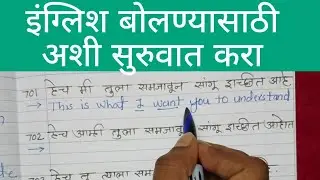 इंग्लिश बोलण्यासाठी
अशी सुरुवात करा
701 हेच मी तुला समजावून सांगू इच्छित आहे.
→ This is what I want you to understand
702 हेच आम्ही तुला समजावून सांगू इच्छित आहोत
→
703 हेच तू त्याला